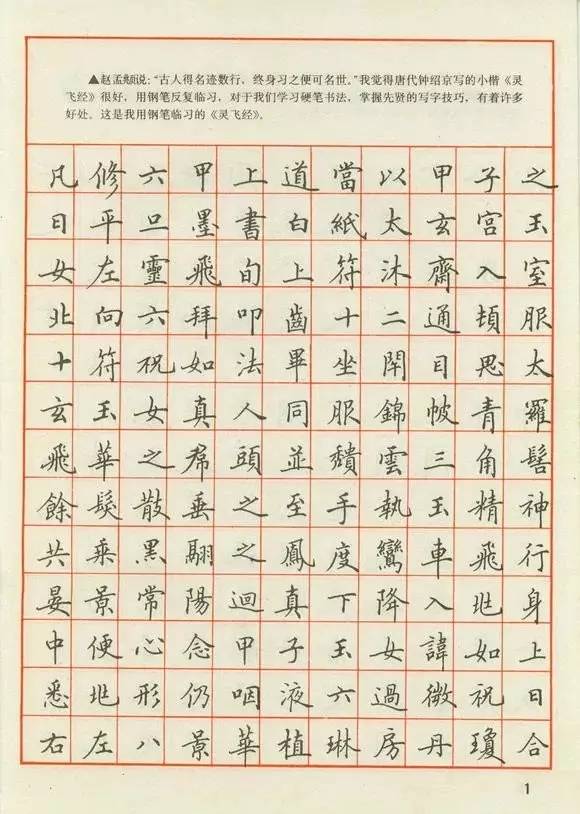 ▲赵孟頫说:“古人得名迹数行,终身习之便可名世。”我觉得唐代钟绍京写的小楷《灵
飞经》很好,用钢笔反复临习,对于我们学习硬笔书法,掌握先贤的写字技巧,有着许多
好处。这是我用钢笔临习的《灵飞经》。
凡修六甲上道當以甲子之
日平旦墨書白紙太玄宮玉
女左靈飛旬上符沐齋入室
北向六拜叩齒十二通頓服
十符祝如法畢坐閇目思太
玄玉女真人同服錦帔青羅
飛華之帬頭並頹雲三角髻
餘髮散垂之至手執玉精神
共乘黑翮之鳳度鸞車飛行
晏景常陽迴真下降入此身
中便心念甲子玉女諱如上
悉此形仍咽液六過微祝曰
右左八景華植琳房丹瓊合
1